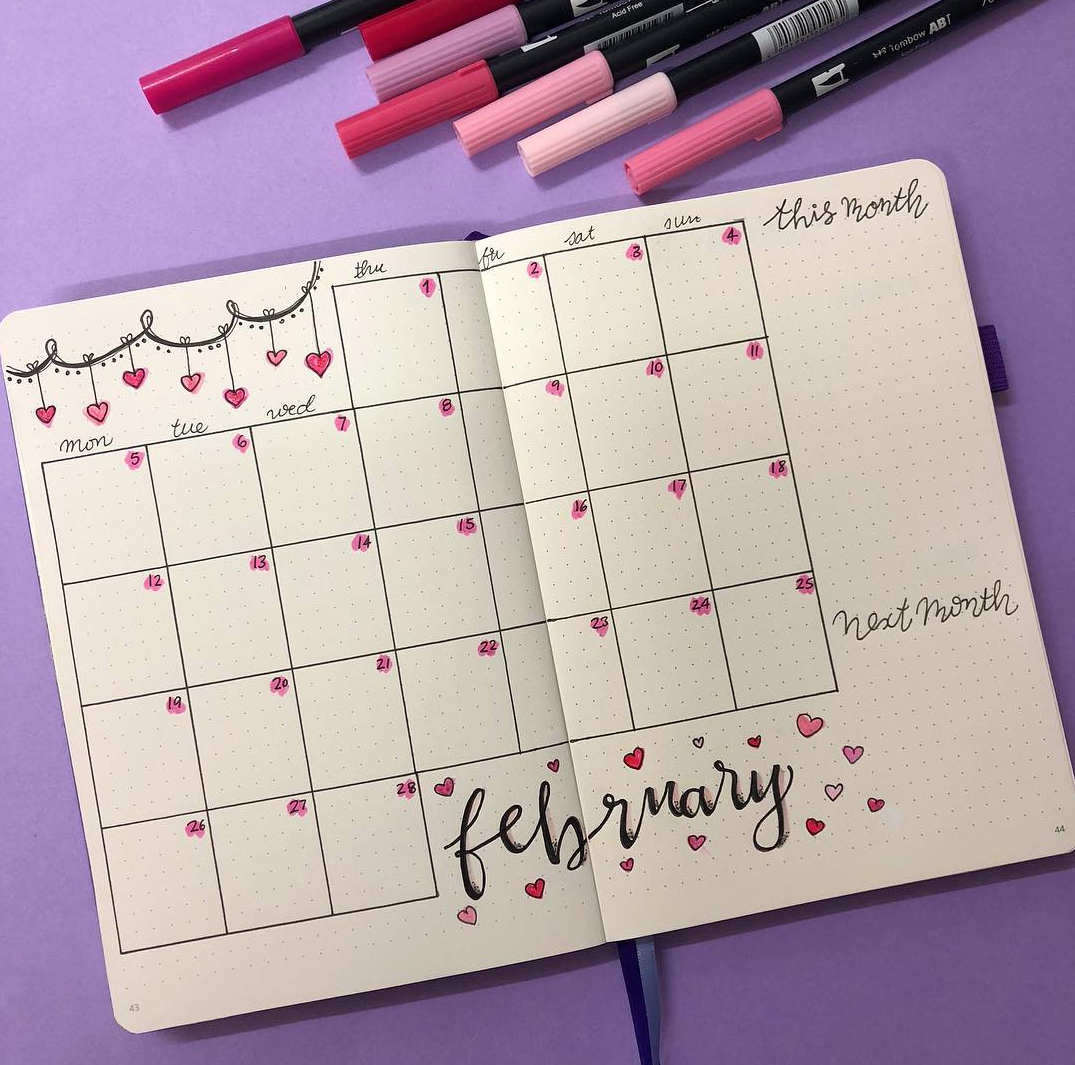 Acid Free
Tombow ABT
this month
thu fri sat sun
1 2 3 4
mon tue wed
5 6 7 8 9 10 11
12 13 14 15 16 17 18
19 20 21 22 23 24 25
26 27 28
next month
february
43
44